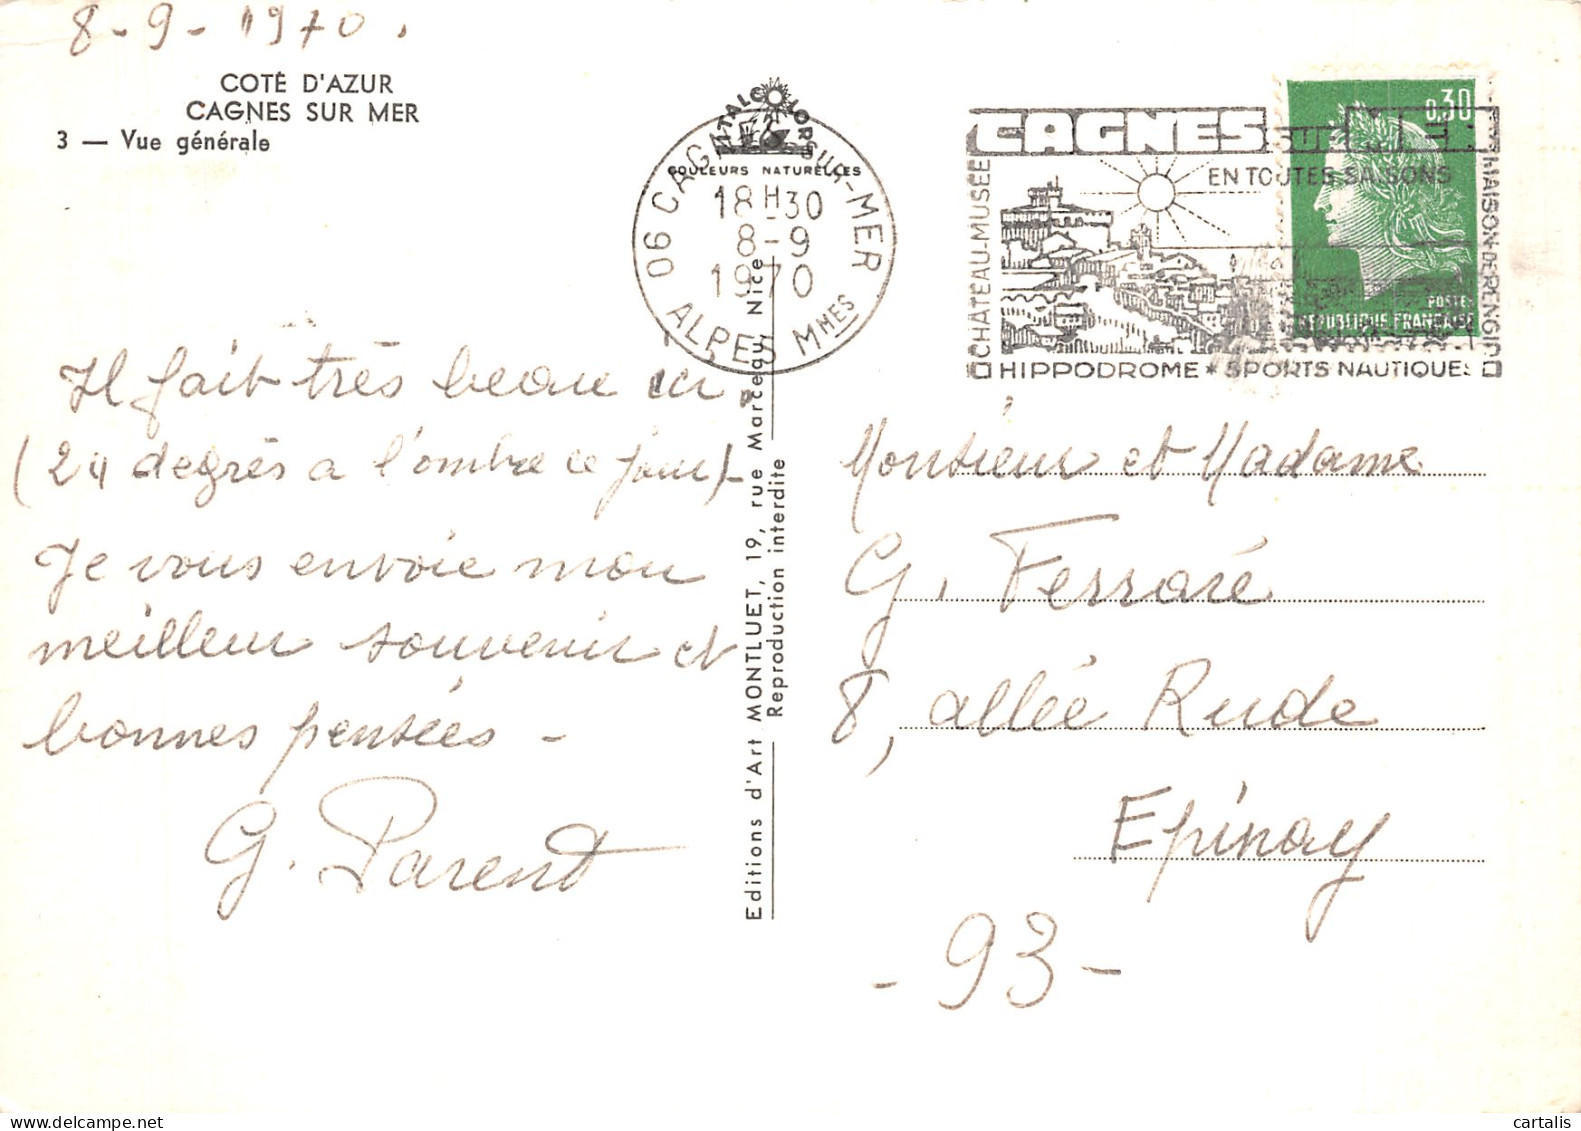 8-9-1970.
COTÉ D'AZUR
CAGNES SUR MER
3 — Vue générale
Il fait très beau ici.
(24 degrés a l'ombre ce jour)-
Je vous envoie mon
meilleur souvenir et
bonnes pensées -
G. Parent
ITALCOLOR
COULEURS NATURELLES
06 CAGNES-SUR-MER
18H30
8-9
1970
ALPES MMES
Editions d'Art MONTLUET, 19, rue Marceau, Nice
Reproduction interdite
CAGNES SUR MER
EN TOUTES SAISONS
CHATEAU-MUSÉE
MAISON DE RENOIR
HIPPODROME * SPORTS NAUTIQUES
0,30
POSTES
REPUBLIQUE FRANÇAISE
Monsieur et Madame
G. Ferraré
8, allée Rude
Epinay
- 93 -
cartalis